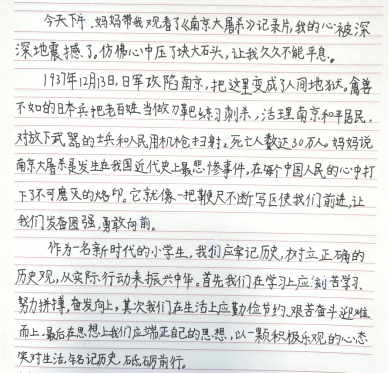 今天下午，妈妈带我观看了《南京大屠杀》记录片，我的心被深
深地震撼了。仿佛心中压了块大石头，让我久久不能平息。
1937年12月13日，日军攻陷南京，把这里变成了人间地狱。禽兽
不如的日本兵把老百姓当做刀靶练习刺杀，活埋南京和平居民，
对放下武器的士兵和人民用机枪扫射。死亡人数达30万。妈妈说
南京大屠杀是发生在我国近代史上最悲惨事件。在每个中国人民的心中打
下了不可磨灭的烙印。它就像一把鞭尺不断驱使我们前进，让
我们发奋图强，勇敢向前。
作为一名新时代的小学生，我们应牢记历史，树立正确的
历史观，从实际行动来振兴中华。首先我们在学习上应刻苦学习、
努力拼搏，奋发向上，其次我们在生活上应勤俭节约、艰苦奋斗迎难
而上，最后在思想上我们应端正自己的思想，以一颗积极乐观的心态
笑对生活，铭记历史，砥砺前行。